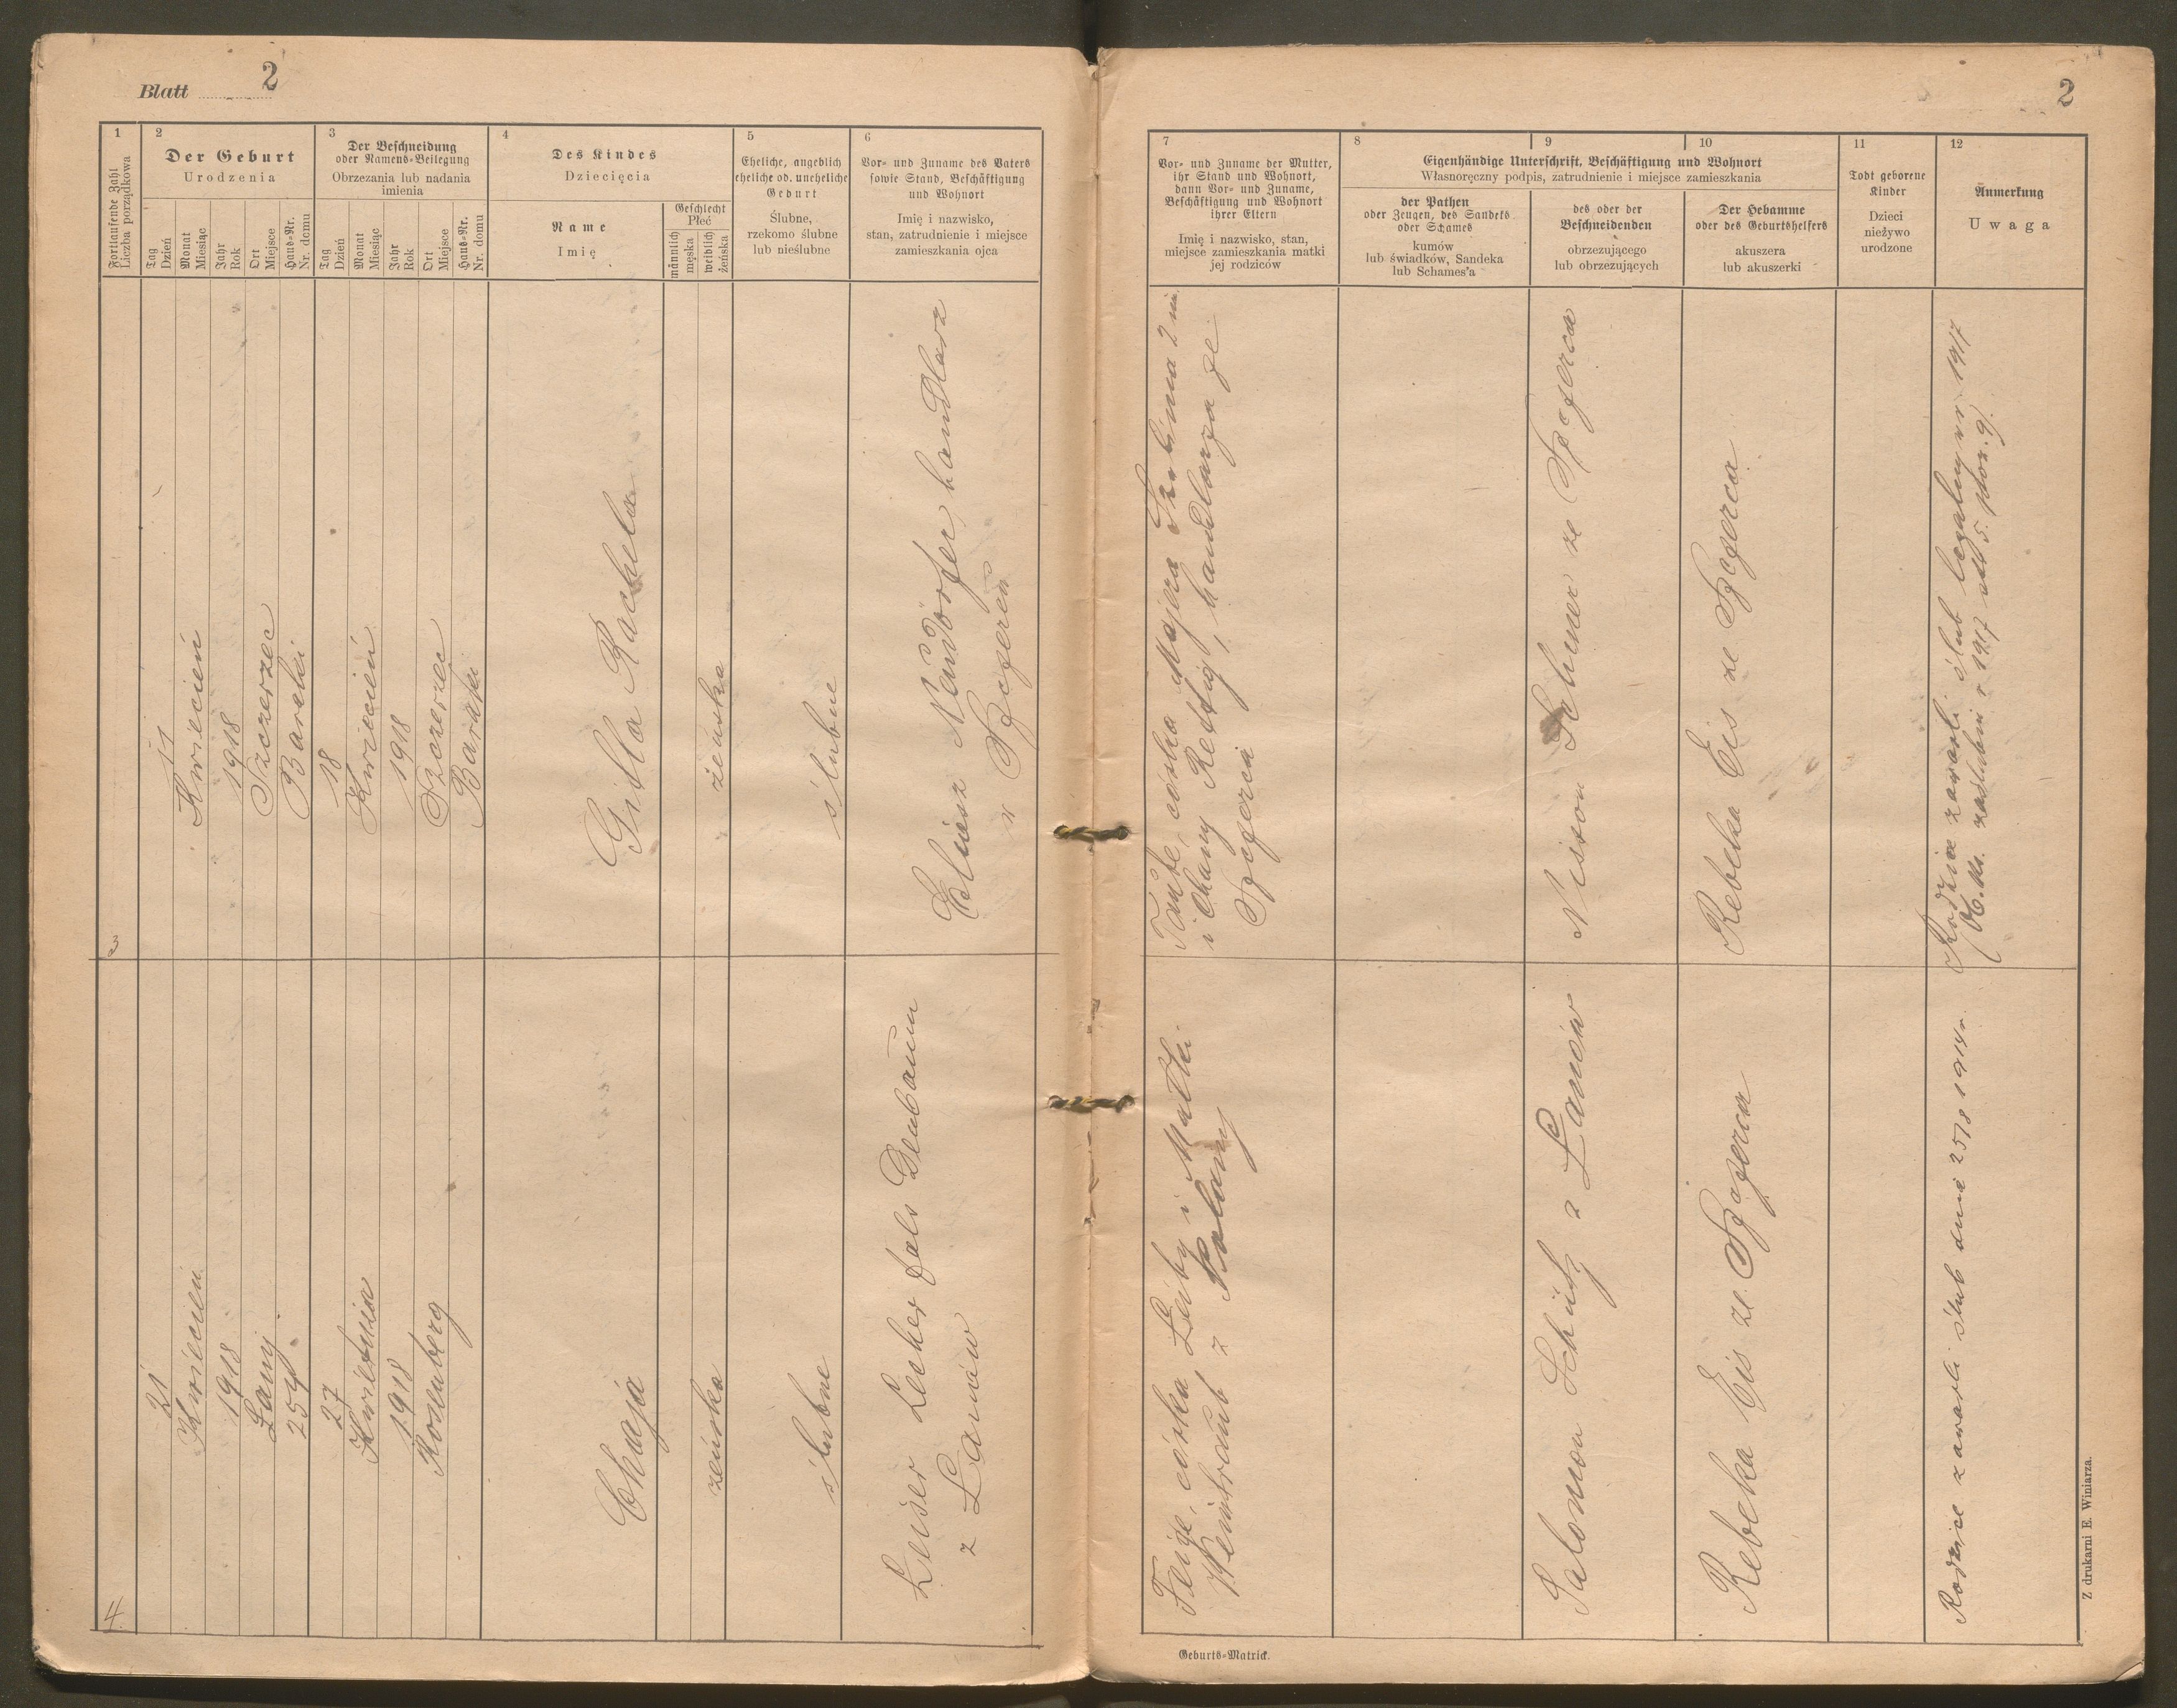 Blatt 2
2
1
Fortlaufende Zahl
Liczba porządkowa
2
Der Geburt
Urodzenia
Tag
Dzień
Monat
Miesiąc
Jahr
Rok
Ort
Miejsce
Haus-Nr.
Nr. domu
3
Der Beschneidung
oder Namens-Beilegung
Obrzezania lub nadania
imienia
Tag
Dzień
Monat
Miesiąc
Jahr
Rok
Ort
Miejsce
Haus-Nr.
Nr. domu
4
Des Kindes
Dziecięcia
Name
Imię
Geschlecht
Płeć
männlich
męska
weiblich
żeńska
5
Eheliche, angeblich
eheliche od. uneheliche
Geburt
Ślubne,
rzekomo ślubne
lub nieślubne
6
Vor- und Zuname des Vaters
sowie Stand, Beschäftigung
und Wohnort
Imię i nazwisko,
stan, zatrudnienie i miejsce
zamieszkania ojca
7
Vor- und Zuname der Mutter,
ihr Stand und Wohnort,
dann Vor- und Zuname,
Beschäftigung und Wohnort
ihrer Eltern
Imię i nazwisko, stan,
miejsce zamieszkania matki
jej rodziców
8
9
10
Eigenhändige Unterschrift, Beschäftigung und Wohnort
Własnoręczny podpis, zatrudnienie i miejsce zamieszkania
der Pathen
oder Zeugen, des Sandeks
oder Schames
kumów
lub świadków, Sandeka
lub Schames'a
des oder der
Beschneidenden
obrzezującego
lub obrzezujących
Der Hebamme
oder des Geburtshelfers
akuszera
lub akuszerki
11
Todt geborene
Kinder
Dzieci
nieżywo
urodzone
12
Anmerkung
Uwaga
11
Kwiecień
1918
Szczerzec
Barki
18
Kwiecień
1918
Szczerzec
Barki
Gitla Rachela
żeńska
ślubne
Eliasz Neudörfer, handlarz
w Szczercu
Taube, córka Majera
i Chany Rettig, handlarza ze
Szczerca
Nison Lehmer ze Szczerca
Rebeka Eis ze Szczerca
Rodzice zawarli ślub legalny w r 1917
1917
4
21
Kwiecień
1918
Łany
254
27
Kwietnia
1918
Rosenberg
Chaja
żeńska
ślubne
Leiser Lecker fals Blaubaum
z Łanów
Feige, córka Leiby i Matli
Weintraub z Polany
Salomon Schütz z Łanów
Rebeka Eis ze Szczerca
Rodzice zawarli ślub dnia 25/8 1914 r.
Geburts-Matrick.
Z drukarni E. Winiarza.